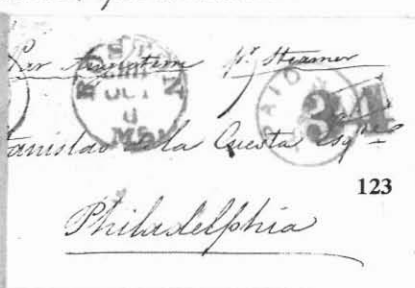 pr Steamer
BOSTON
OCT
MS
PAID
34
anislao de la Cuesta Esqre
123
Philadelphia